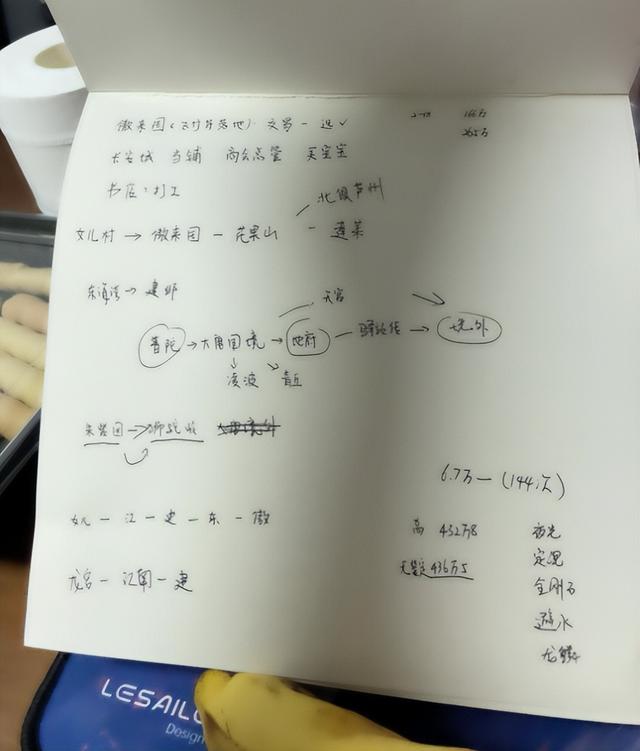 傲来国（飞行符落地）交易一选✓ 2-1万 166万
265万
长安城 当铺 商会总管 买宝宝
书店：打工
北俱芦州
女儿村 → 傲来国 — 花果山 — 蓬莱
东海湾 → 建邺
天宫
普陀 → 大唐国境 → 地府 — 驿站传 → 境外
凌波
朱紫国 → 狮驼岭
6.7万 — (144次)
女儿 — 江 — 建 — 东 — 傲
高 432万8 夜光
龙宫 — 江南 — 建
无鉴定436万5 定魂
金刚石
避水
龙鳞
LESAILO
Design